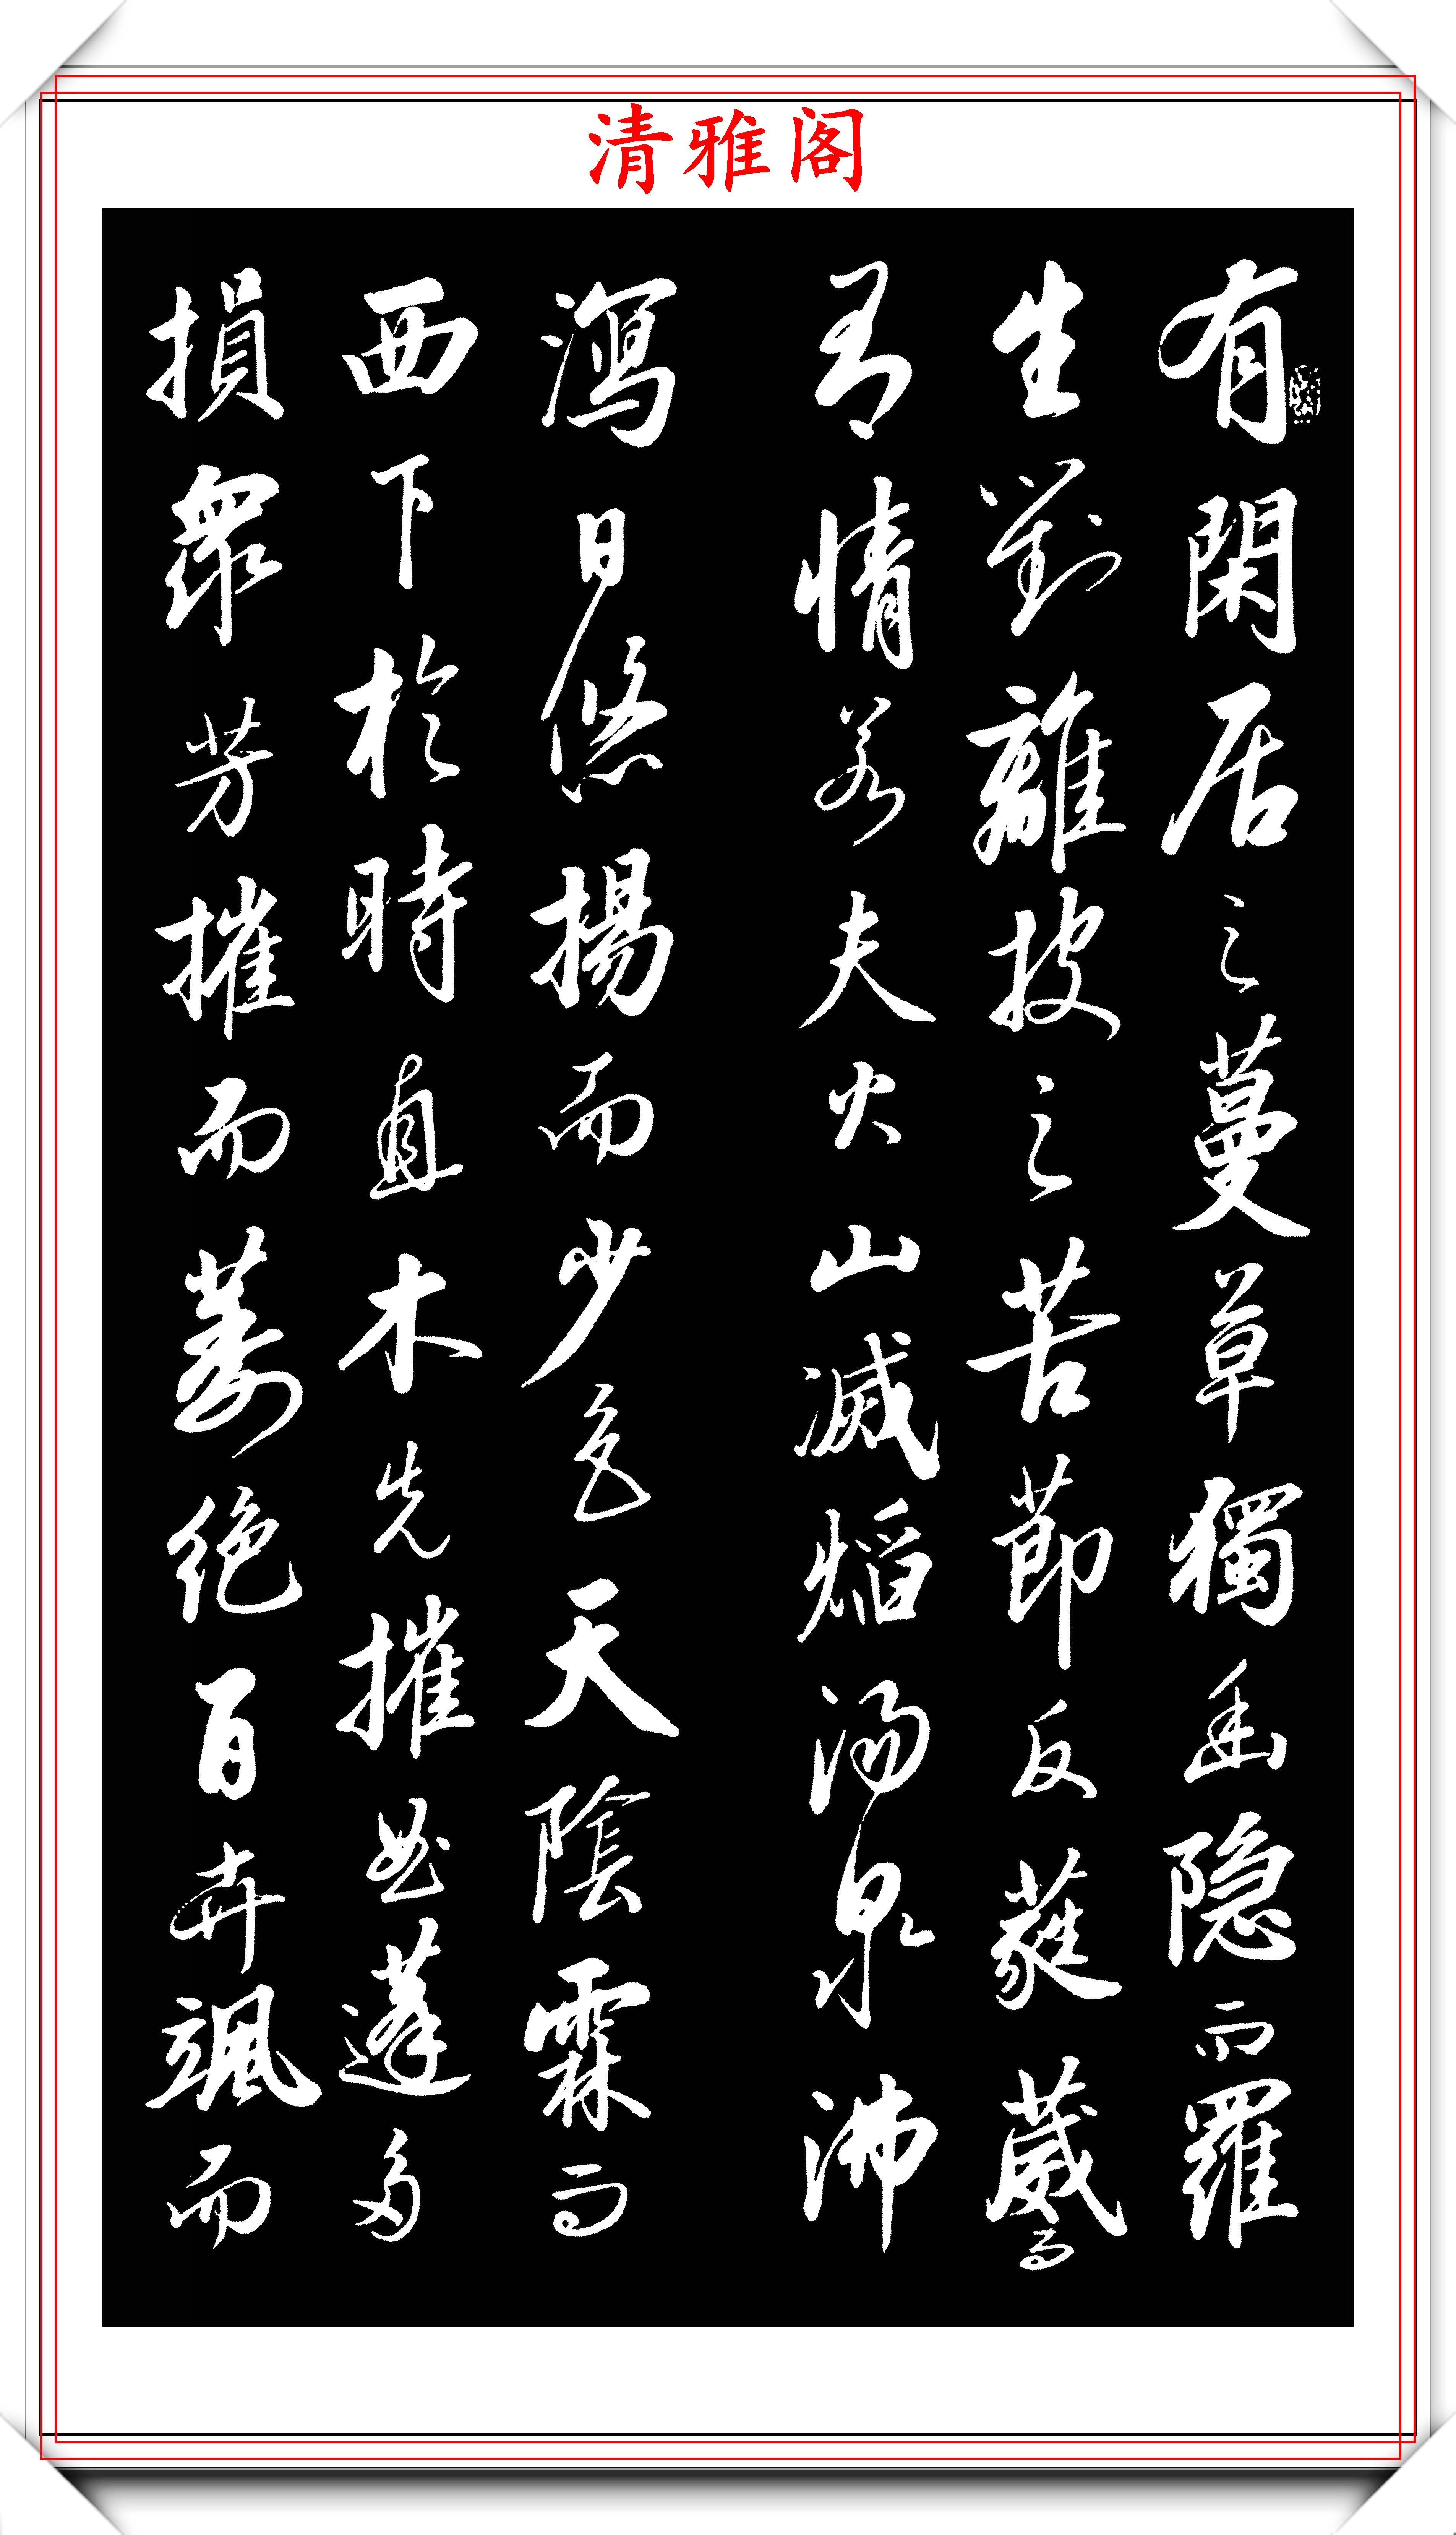 清雅阁
有閑居之蔓草獨幽隱而羅
生對離披之苦節反蕤葳而
有情若夫火山滅焰湯泉沸
瀉日悠揚而少色天陰霖而
西下於時直木先摧曲蓬多
損衆芳摧而萎絕百卉颯而